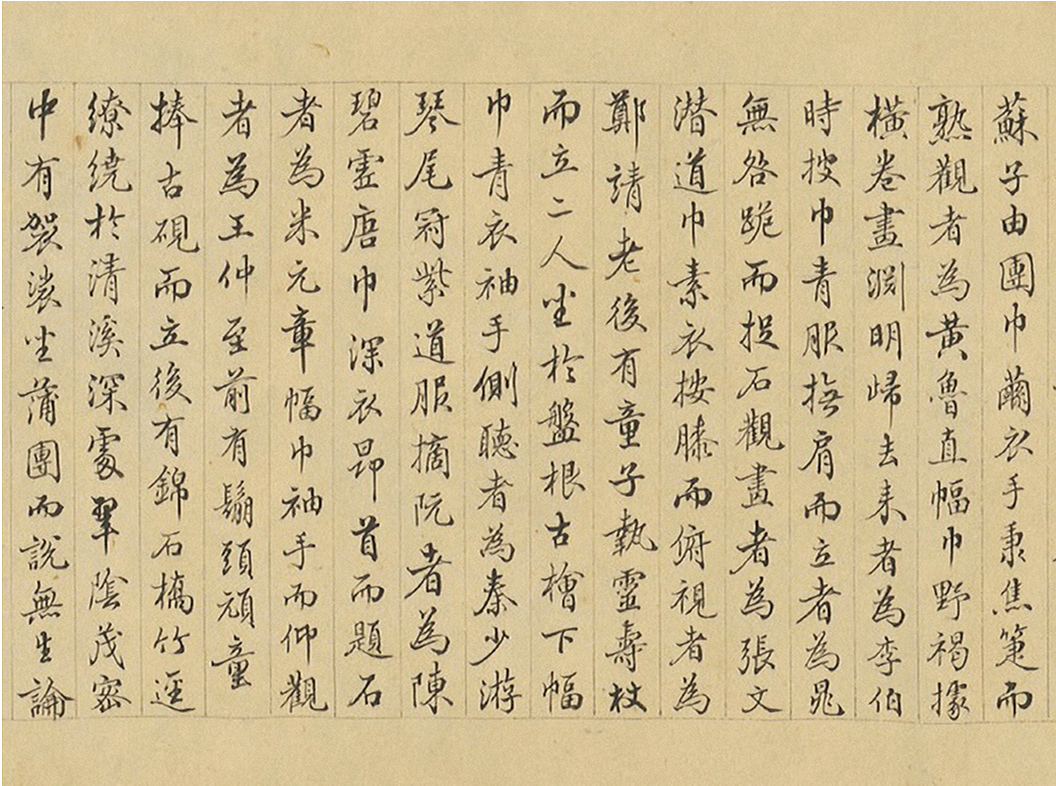 蘇子由團巾繭衣手秉焦箑而
熟觀者為黃魯直幅巾野褐據
橫卷畫淵明歸去来者為李伯
時披巾青服撫肩而立者為晁
無咎跪而捉石觀畫者為張文
潜道巾素衣按膝而俯視者為
鄭靖老後有童子執靈壽杖
而立二人坐於盤根古檜下幅
巾青衣袖手側聽者為秦少游
琴尾冠紫道服摘阮者為陳
碧虛唐巾深衣昂首而題石
者為米元章幅巾袖手而仰觀
者為王仲至前有鬅頭頑童
捧古硯而立後有錦石橋竹逕
繚繞於清溪深處翠陰茂密
中有袈裟坐蒲團而說無生論